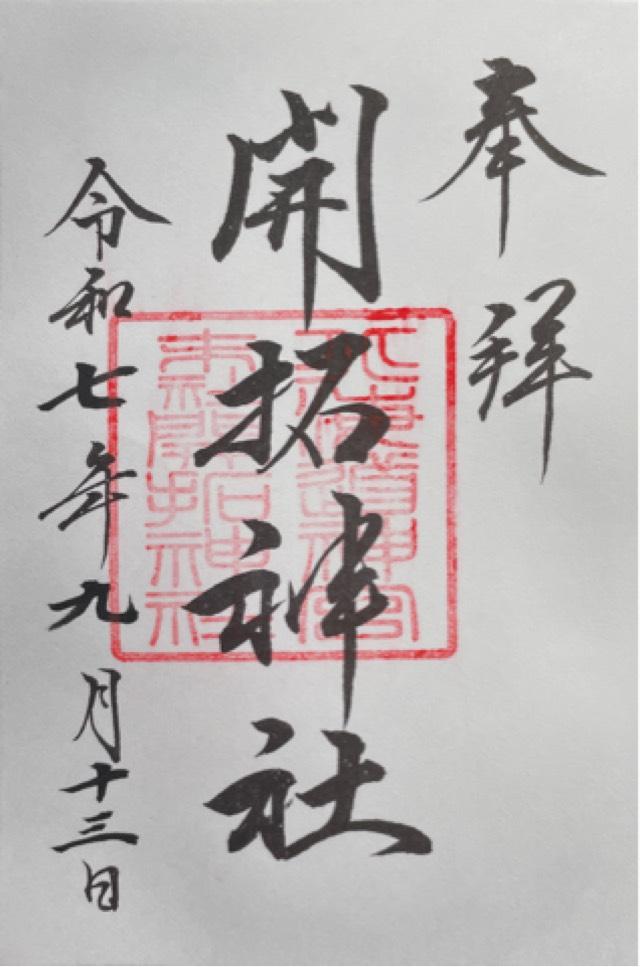 奉拝
開拓神社
北海道神宮
末社開拓神社
令和七年九月十三日